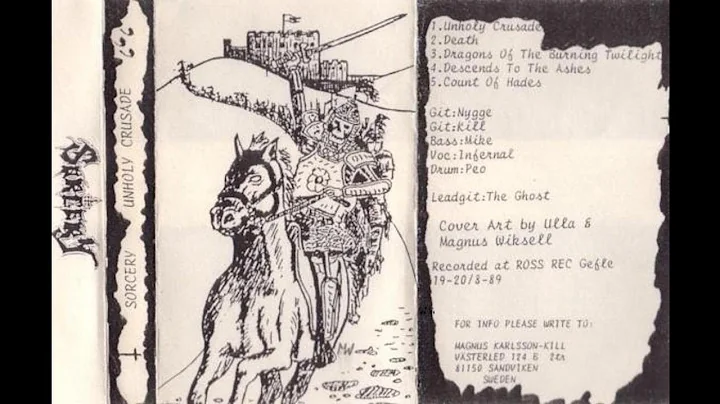 SORCERY
SORCERY UNHOLY CRUSADE 666
1.Unholy Crusade
2.Death
3.Dragons Of The Burning Twilight
4.Descends To The Ashes
5.Count Of Hades
Git:Nygge
Git:Kill
Bass:Mike
Voc:Infernal
Drum:Peo
Leadgit:The Ghost
Cover Art by Ulla &
Magnus Wiksell
Recorded at ROSS REC Gefle
19-20/8-89
FOR INFO PLEASE WRITE TO:
MAGNUS KARLSSON-KILL
VÄSTERLED 124 B 2tr
81150 SANDVIKEN
SWEDEN
MW